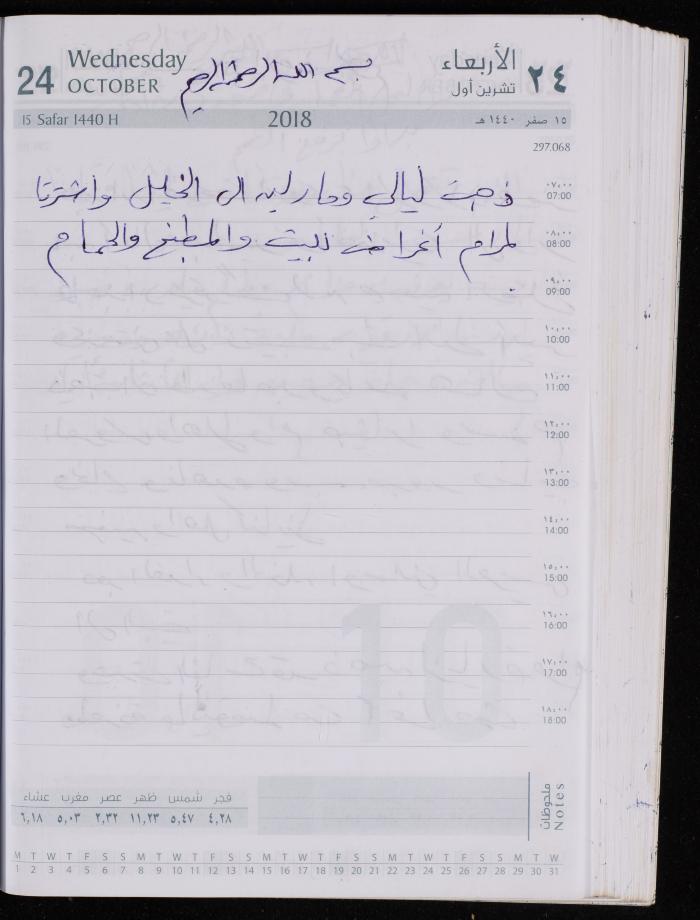 24 Wednesday OCTOBER
بسم الله الرحمن الرحيم
الأربعاء ٢٤
تشرين أول
15 Safar 1440 H 2018 ١٥ صفر ١٤٤٠ هـ
297.068
ذهبت ليالي ومارلين الى الخليل واشترتا
٠٧:٠٠
07:00
لمرام أغراض للبيت والمطبخ والحمام
٠٨:٠٠
08:00
٠٩:٠٠
09:00
١٠:٠٠
10:00
١١:٠٠
11:00
١٢:٠٠
12:00
١٣:٠٠
13:00
١٤:٠٠
14:00
١٥:٠٠
15:00
١٦:٠٠
16:00
١٧:٠٠
17:00
١٨:٠٠
18:00
10
ملحوظات
Notes
فجر شمس ظهر عصر مغرب عشاء
٤,٢٨ ٥,٤٧ ١١,٢٣ ٢,٣٢ ٥,٠٣ ٦,١٨
M T W T F S S M T W T F S S M T W T F S S M T W T F S S M T W
1 2 3 4 5 6 7 8 9 10 11 12 13 14 15 16 17 18 19 20 21 22 23 24 25 26 27 28 29 30 31